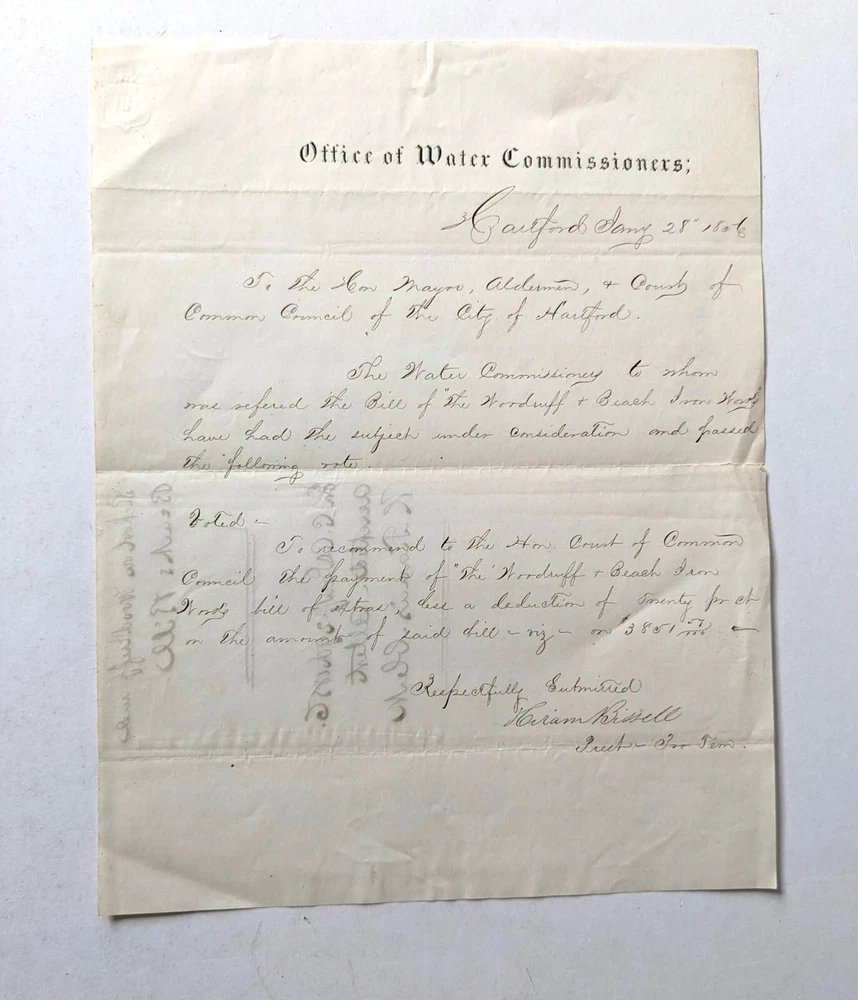 Office of Water Commissioners;
Hartford Jany 28" 1856
To the Hon Mayor, Aldermen, & Court of
Common Council of the City of Hartford.
The Water Commissioners to whom
was refered the Bill of "The Woodruff & Beach Iron Works
have had the subject under consideration and passed
the following vote.
Voted -
To recommend to the Hon. Court of Common
Council the payment of "The Woodruff & Beach Iron
Works bill of extras", less a deduction of Twenty pr ct
on the amount of said bill - viz - on $3851 57/100 -
Respectfully Submitted
Hiram Bissell
Prest - Pro Tem.